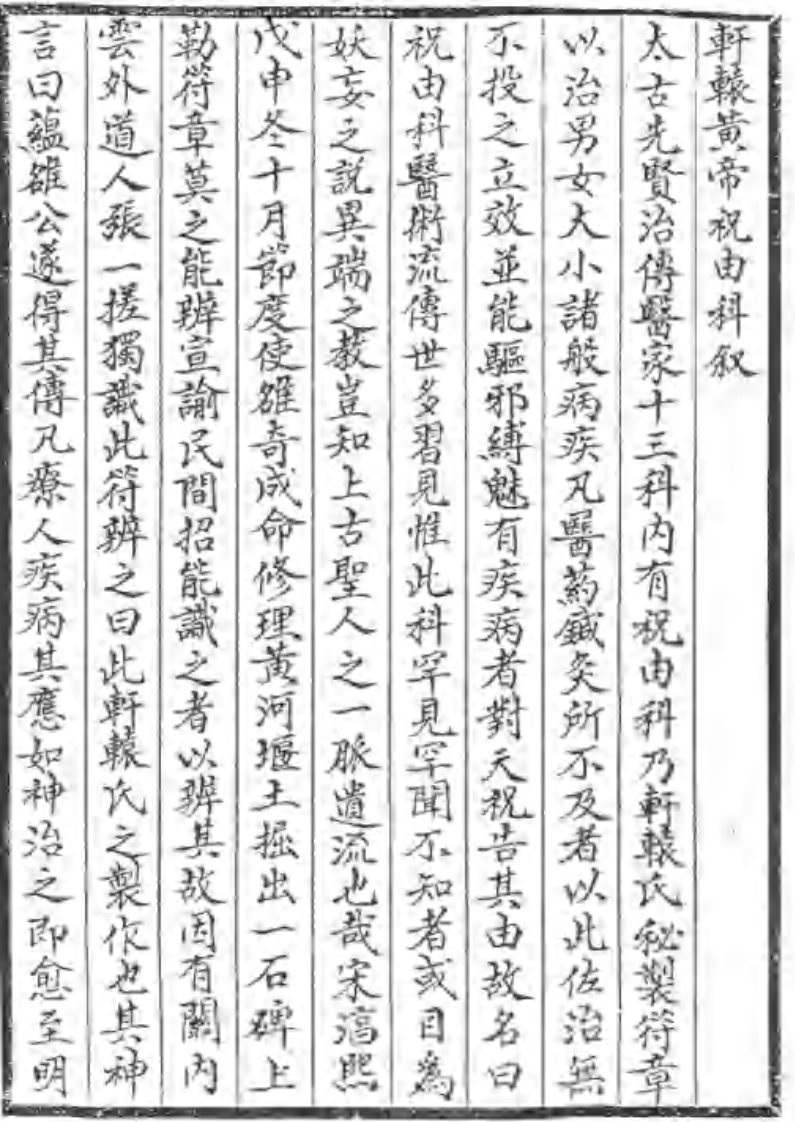 軒轅黃帝祝由科叙
太古先賢治傳醫家十三科內有祝由科乃軒轅氏秘製符章
以治男女大小諸般病疾凡醫药鍼灸所不及者以此佐治無
不投之立效並能驅邪縛魅有疾病者對天祝告其由故名曰
祝由科醫術流傳世多習見惟此科罕見罕聞不知者或目為
妖妄之說異端之教豈知上古聖人之一脈遺流也哉宋淳熙
戊申冬十月節度使雒奇成命修理黃河堰土掘出一石碑上
勒符章莫之能辨宣諭民間招能識之者以辨其故因有關內
雲外道人張一搓獨識此符辨之曰此軒轅氏之製作也其神
言曰蘊雒公遂得其傳凡療人疾病其應如神治之即愈至明